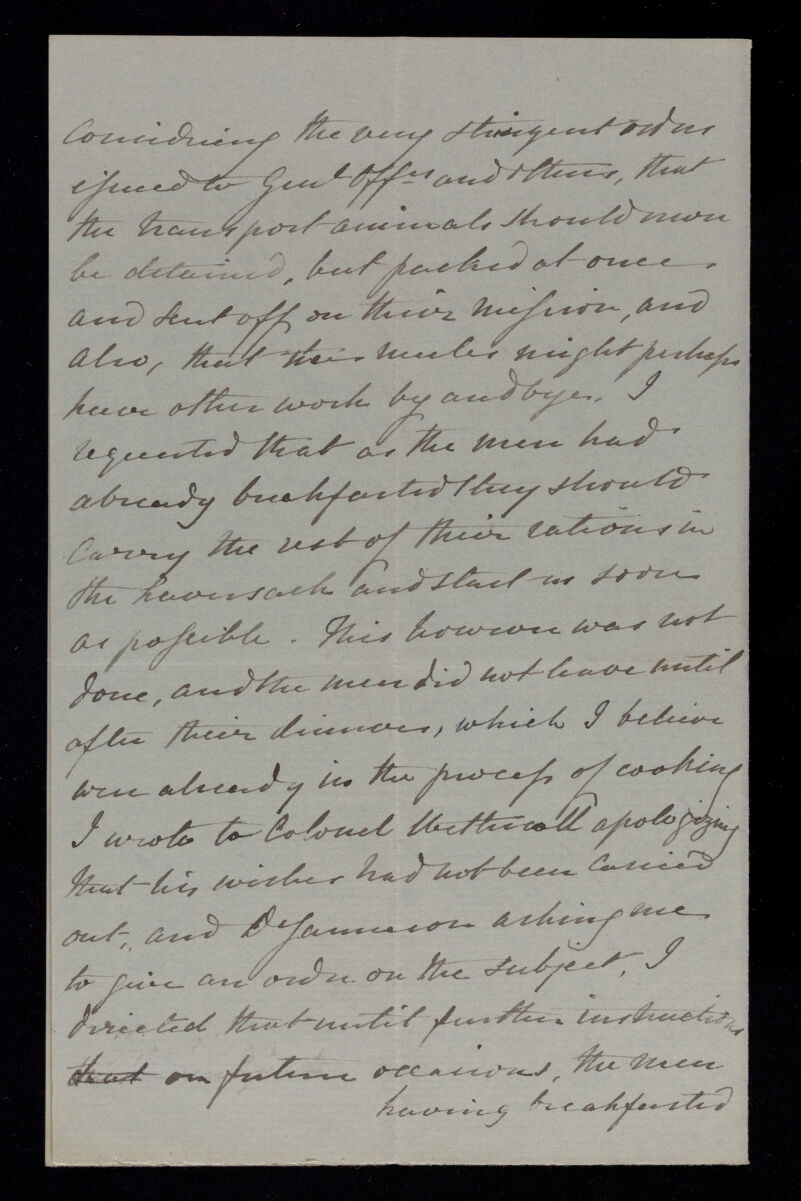 Considering the very stringent orders
issued to Genl Offrs and others, that
the transport animals should never
be detained, but packed at once
and sent off on their mission, and
also, that the mules might perhaps
have other work by and bye. I
requested that as the men had
already breakfasted they should
carry the rest of their rations in
the haversack and start as soon
as possible. This however was not
done, and the men did not leave until
after their dinners, which I believe
were already in the process of cooking
I wrote to Colonel Wetherall apologizing
that his wishes had not been carried
out, and Dr Jameson asking me
to give an order on the subject, I
directed that until further instructions
that on future occasions, the men
having breakfasted